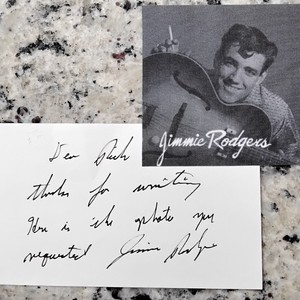 Jimmie Rodgers
Dear Rich
thanks for writing
Here is the photo you
requested Jimmie Rodgers